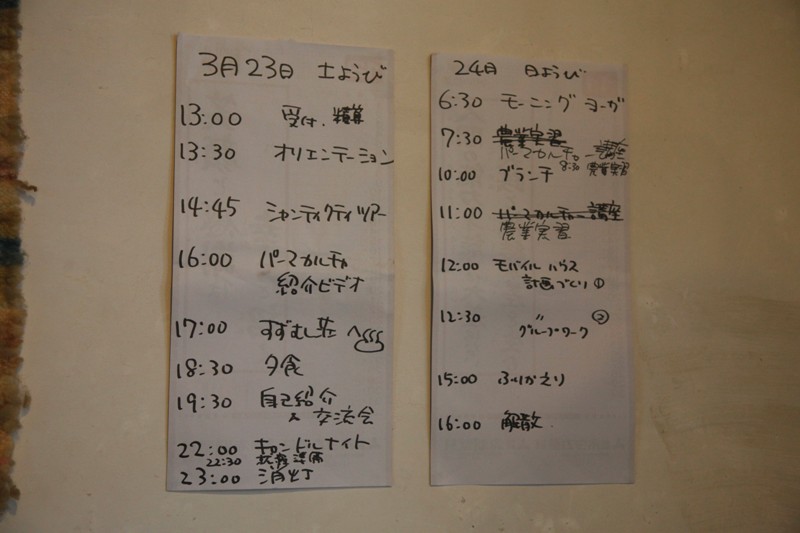 3月23日 土ようび
13:00 受付.精算
13:30 オリエンテーション
14:45 シャンティクティツアー
16:00 パーマカルチャ
紹介ビデオ
17:00 すずむし荘へ
18:30 夕食
19:30 自己紹介
& 交流会
22:00 キャンドルナイト
22:30 就寝準備
23:00 消灯
24日 日ようび
6:30 モーニング ヨーガ
7:30 農業実習
パーマカルチャー講座
8:30 農業実習
10:00 ブランチ
11:00 パーマカルチャー講座
農業実習
12:00 モバイルハウス
計画づくり①
12:30 〃 ②
グループワーク
15:00 ふりかえり
16:00 解散